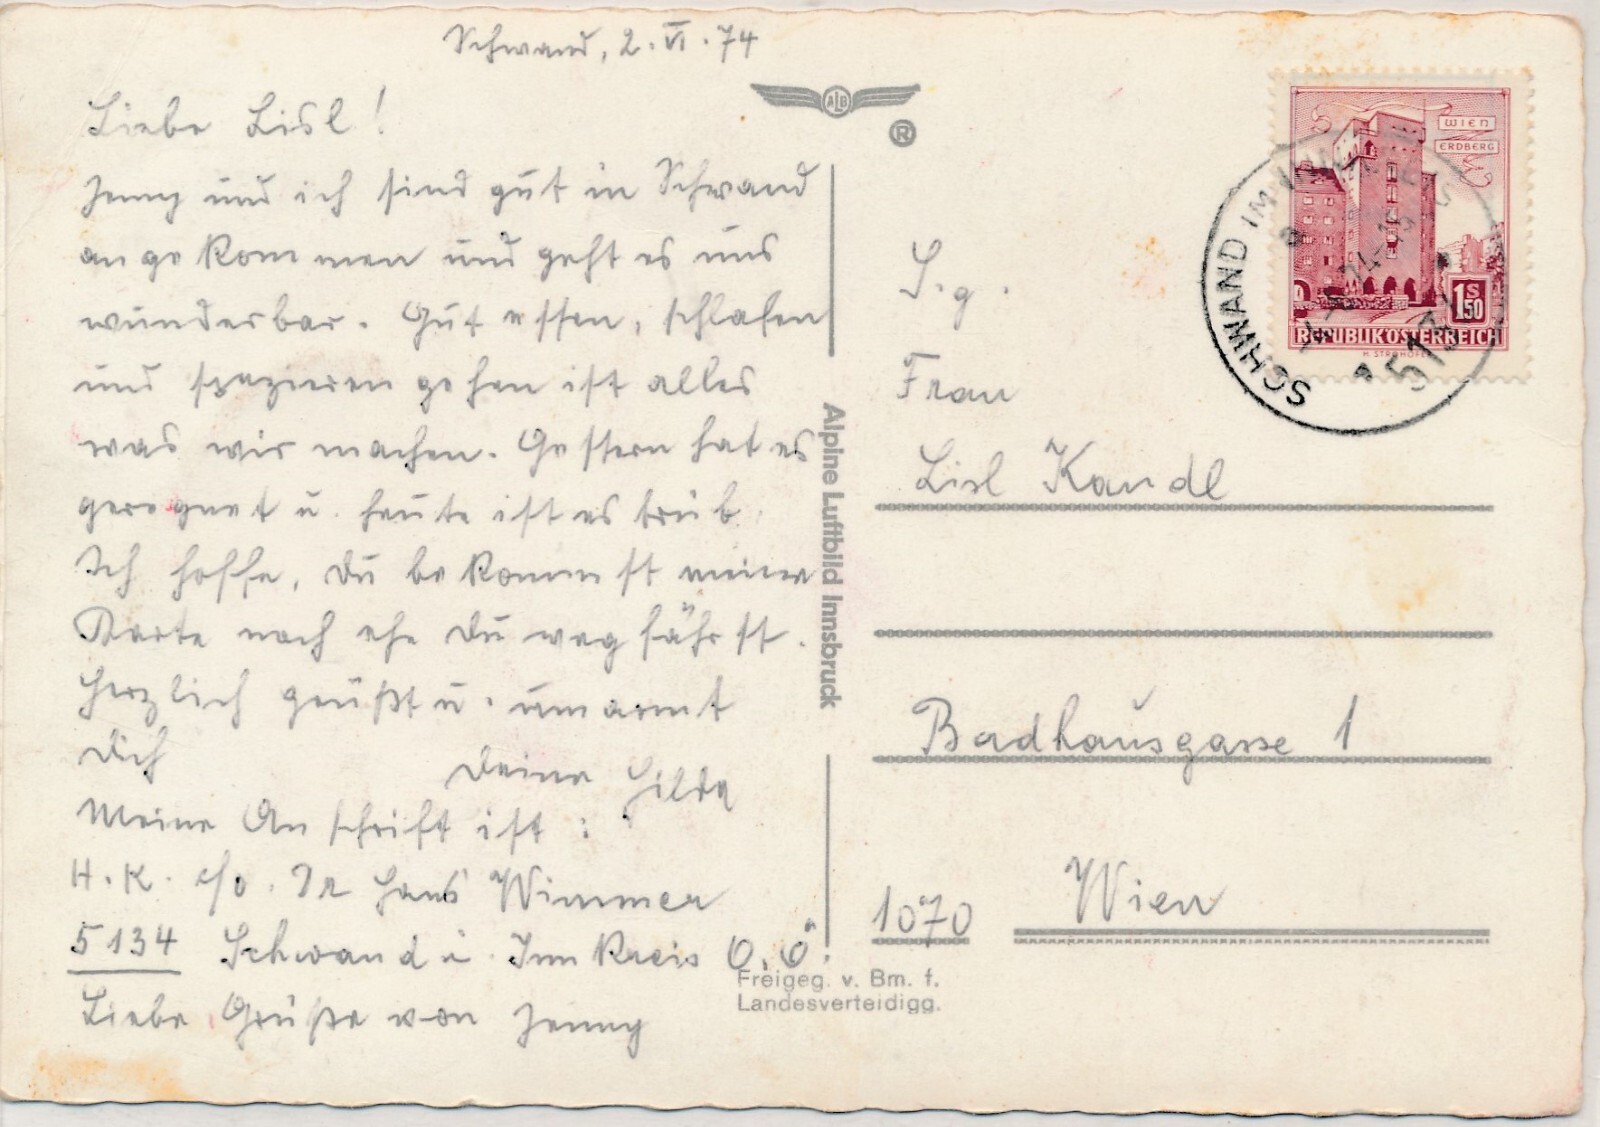 Schwand, 2.VI.74
Liebe Lisl!
Jenny und ich sind gut in Schwand
angekommen und geht es uns
wunderbar. Gut essen, schlafen
und spazieren gehen ist alles
was wir machen. Gestern hat es
geregnet u. heute ist es trüb.
Ich hoffe, Du bekommst meine
Karte noch ehe Du wegfährst.
Herzlich grüßt u. umarmt
Dich
Deine Hilda
Meine Anschrift ist:
H.K. c/o. Dr Hans Wimmer
5134 Schwand i. Innkreis O.Ö.
Liebe Grüße von Jenny
ALB
®
Alpine Luftbild Innsbruck
Freigeg. v. Bm. f.
Landesverteidigg.
WIEN
ERDBERG
1S50
REPUBLIK ÖSTERREICH
H. STROHOFER
SCHWAND IM INNKREIS
S.g.
Frau
Lisl Kandl
Badhausgasse 1
1070 Wien